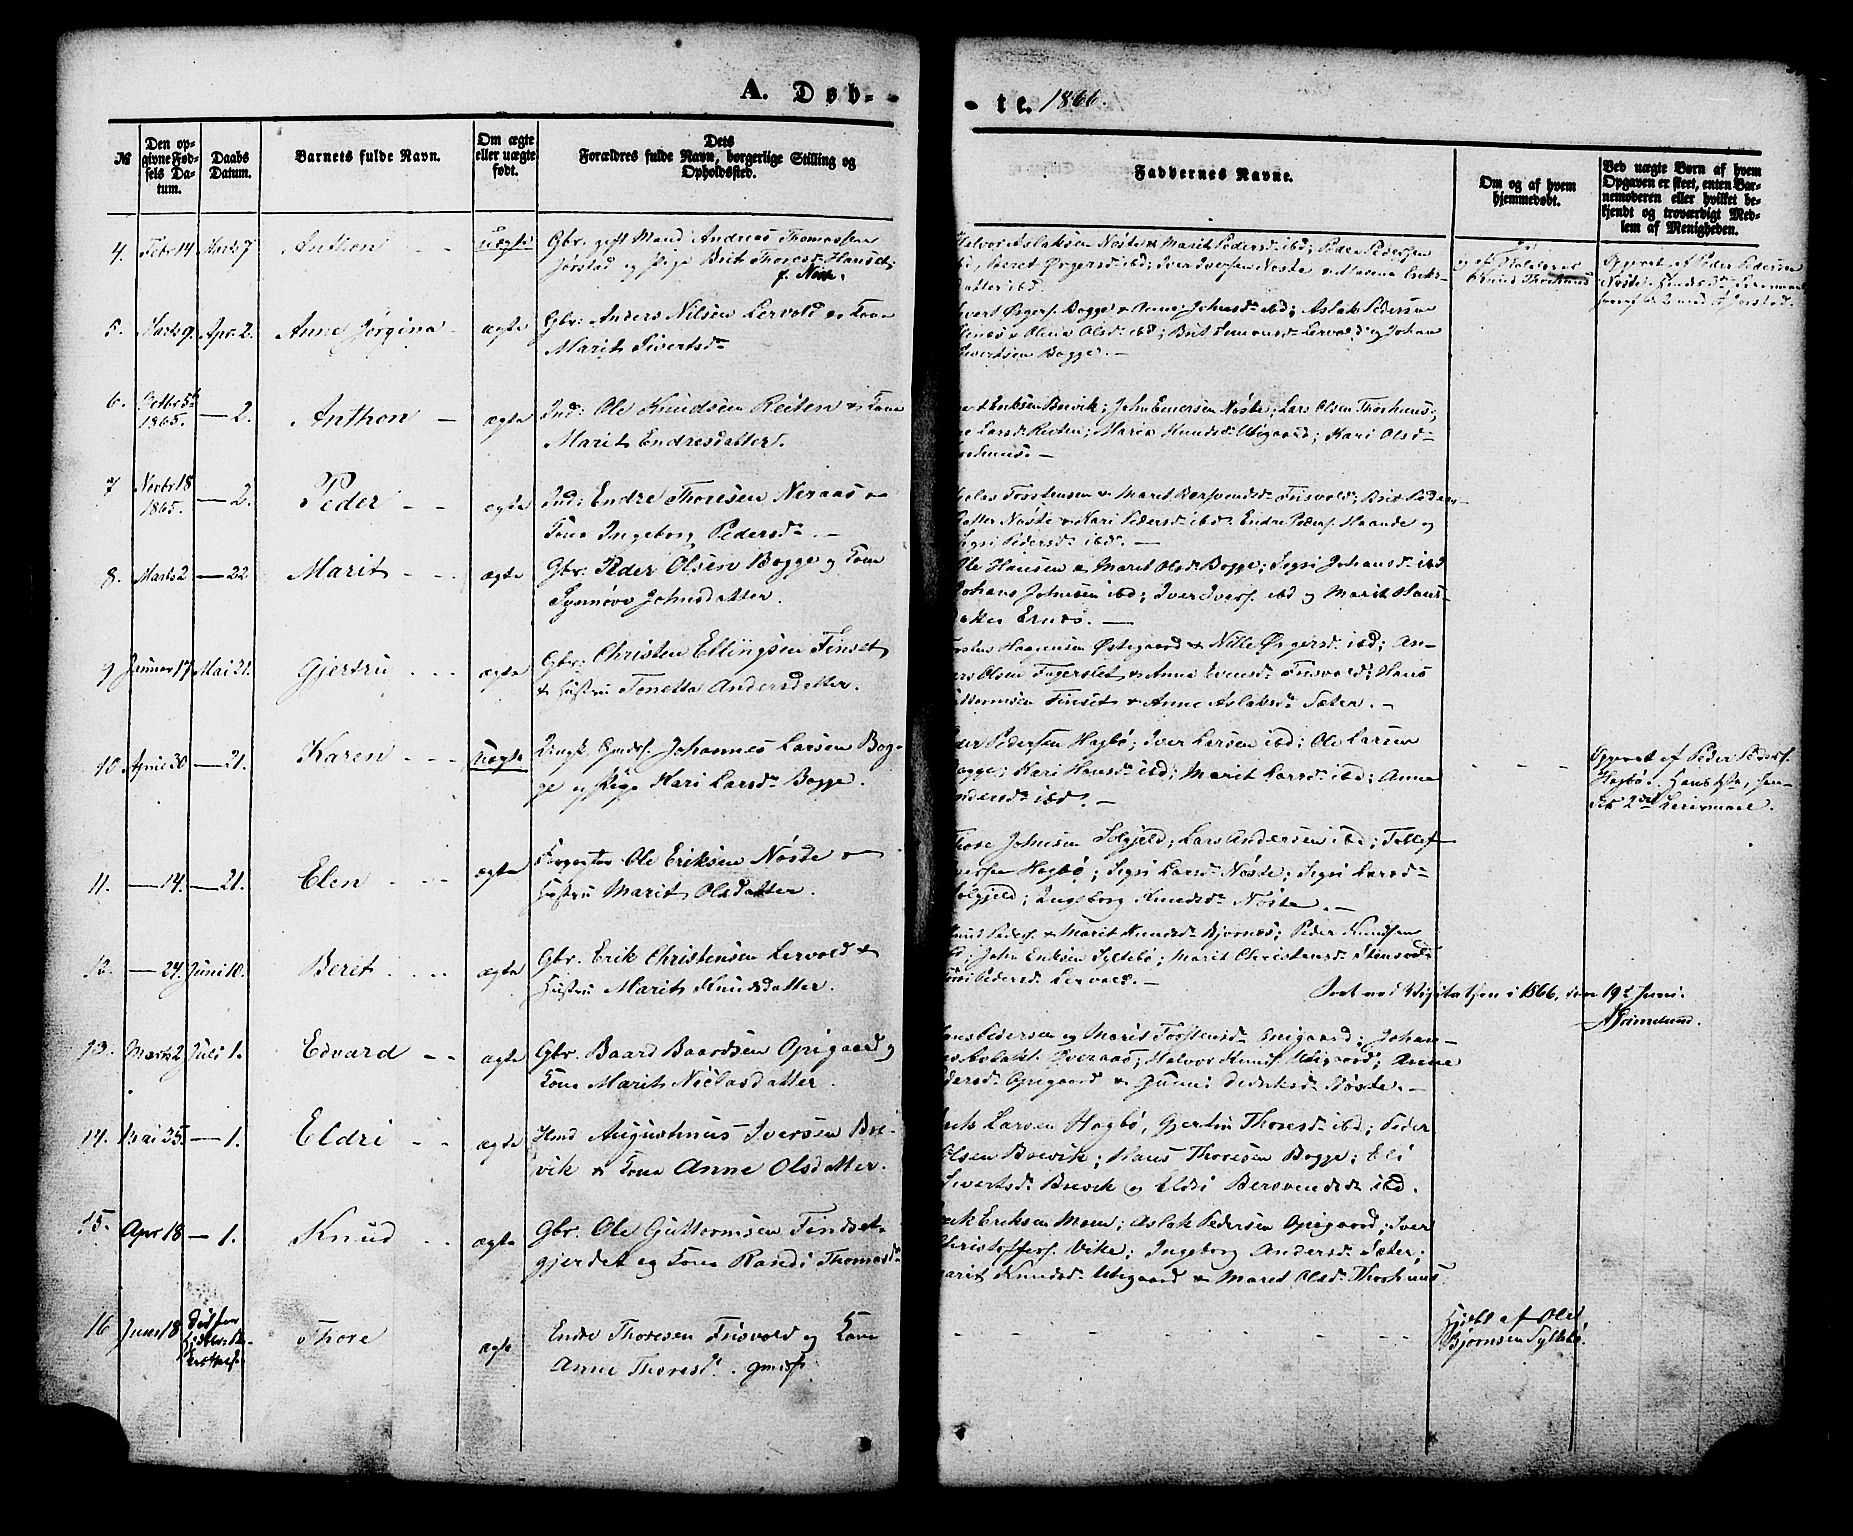 A. Døb-
- te. 1866.
№
Den op-
givne Fød-
sels Da-
tum.
Daabs
Datum.
Barnets fulde Navn.
Om ægte
eller uægte
født.
Dets
Forældres fulde Navn, borgerlige Stilling og
Opholdssted.
Faddernes Navne.
Om og af hvem
hjemmedøbt.
Ved uægte Børn af hvem
Opgaven er skeet, enten Bar-
nemoderen eller hvilket be-
kjendt og troværdigt Med-
lem af Menigheden.
4. Febr 14 Marts 7 Anthon uægte Gbr. gift Mand Andreas Thomassen
Jørstad og Pige Brit Thoresd. Hanset
f. Nøste.
Halvor Aslaksen Nøste & Marit Pedersd. ibd; Peder Pedersen
Beret Ørgersd. ibd; Iver Iversen Nøste
datter ibd.
Knud Thorhuus
Opgivet af Peder Pedersen
Nøste.
5. Marts 9. Apr. 2. Anne Jørgina ægte Gbr. Anders Nilsen Lervold & Kone
Marit Sivertsd.
Anne Johnsd. ibd; Aslak Pedersen
Olina Olsd. ibd; Brit Lervold og Johan
Sivertsen Bogge. —
6. Octbr 5
1865. — 2. Anthon — ægte Ind: Ole Knudsen Reiten & Kone
Marit Endresdatter.
Eriksen Brevik; John Nøste; Lars Olsen Thorhuus;
Larsd. Reiten; Maria Knudsd. Utigaard; Kari Olsd.
7 Novbr 18
1865. — 2. Peder ægte Ind: Endre Thoresen Neraas &
Kone Ingeborg Pedersd. —
Torstensen & Marit Frisvold; Brit Peders
datter Nøste & Kari Pedersd. ibd. Endre Peders. Haande og
Sigri Pedersd. ibd. —
8. Marts 2 — 22 Marit ægte Gbr. Peder Olsen Bogge og Kone
Synnøve Johnsdatter.
Ole Hansen & Marit Olsd. Bogge; Sigri Johansd. ibd
Johans Johnsen ibd; Iver Ivers. ibd og Marit Hans
datter
9 Januar 17 Mai 21. Gjertru ægte Gbr. Christen Ellingsen Finset
& Hustru Tonetta Andersdatter.
Haagensen Østigaard & Nille Ørgersd. ibd; An-
ders Olsen Fagerslet & Anne Evensd. Frisvold; Hans
Guttormsen Finset & Anne Aslaksd. Sæter. —
10 April 30 — 21. Karen uægte Johannes Larsen Bog-
ge & Pige Kari Larsd. Bogge.
Peder Pedersen Hagbø; Iver Larsen ibd; Ole Larsen
Bogge; Kari Hansd. ibd; Marit Larsd. ibd; Anne
Andersd. ibd. —
Opgivet af Peder Peders.
Hagbø. Hans 1ste, hen-
des 2det Leiermaal.
11. — 14. — 21. Elen ægte Ole Eriksen Nøste &
Hustru Marit Olsdatter.
Thore Johnsen Solgjeld; Lars Andersen ibd; Tollef
Hagbø; Sigri Larsd. Nøste; Sigri Larsd.
Solgjeld; Ingeborg Knudsd. Nøste. —
12. — 24. Juni 10. Berit ægte Gbr. Erik Christensen Lervold &
Hustru Marit Knudsdatter.
Peders. & Marit Knudsd. Bjørnes; Peder Knudsen
John Eriksen Syltebø; Marit Christensd. Stensvold
Pedersd. Lervold. —
Seet ved Visitatsen i 1866, den 19de Juni.
Grimelund.
13. Marts 2 Juli 1. Edvard ægte Gbr. Baard Baardsen Opigaard &
Kone Marit Niclasdatter.
Hans Pedersen og Marit Torstensd. Johan-
nes Aslaks. Halvor Knuds. Utigaard; Anne
Pedersd. Opigaard & Didriksd. Nøste. —
14. Mai 25. — 1. Eldri ægte Hmd Augustinus Iversen Bre-
vik & Kone Anne Olsdatter.
Larsen Hagbø, Gjertru Thoresd. ibd; Peder
Olsen Brevik; Hans Thoresen Bogge; Eli
Sivertsd. Brevik og Eldri Bersvendsd. ibd.
15. Apr 18 — 1. Knud ægte Gbr. Ole Guttormsen Findset-
gjerdet og Kone Randi Thomasd.
Erik Eriksen Moen; Aslak Pedersen Opigaard; Iver
Christoffers. Vike; Ingeborg Andersd. Sæter;
Marit Knudsd. Utigaard & Marit Olsd. Thorhuus.
16 Juni 18 død før
Thore ægte Endre Thoresen Frisvold og Kone
Anne Thoresd.
af Ole
Bjørnsen Syltebø.